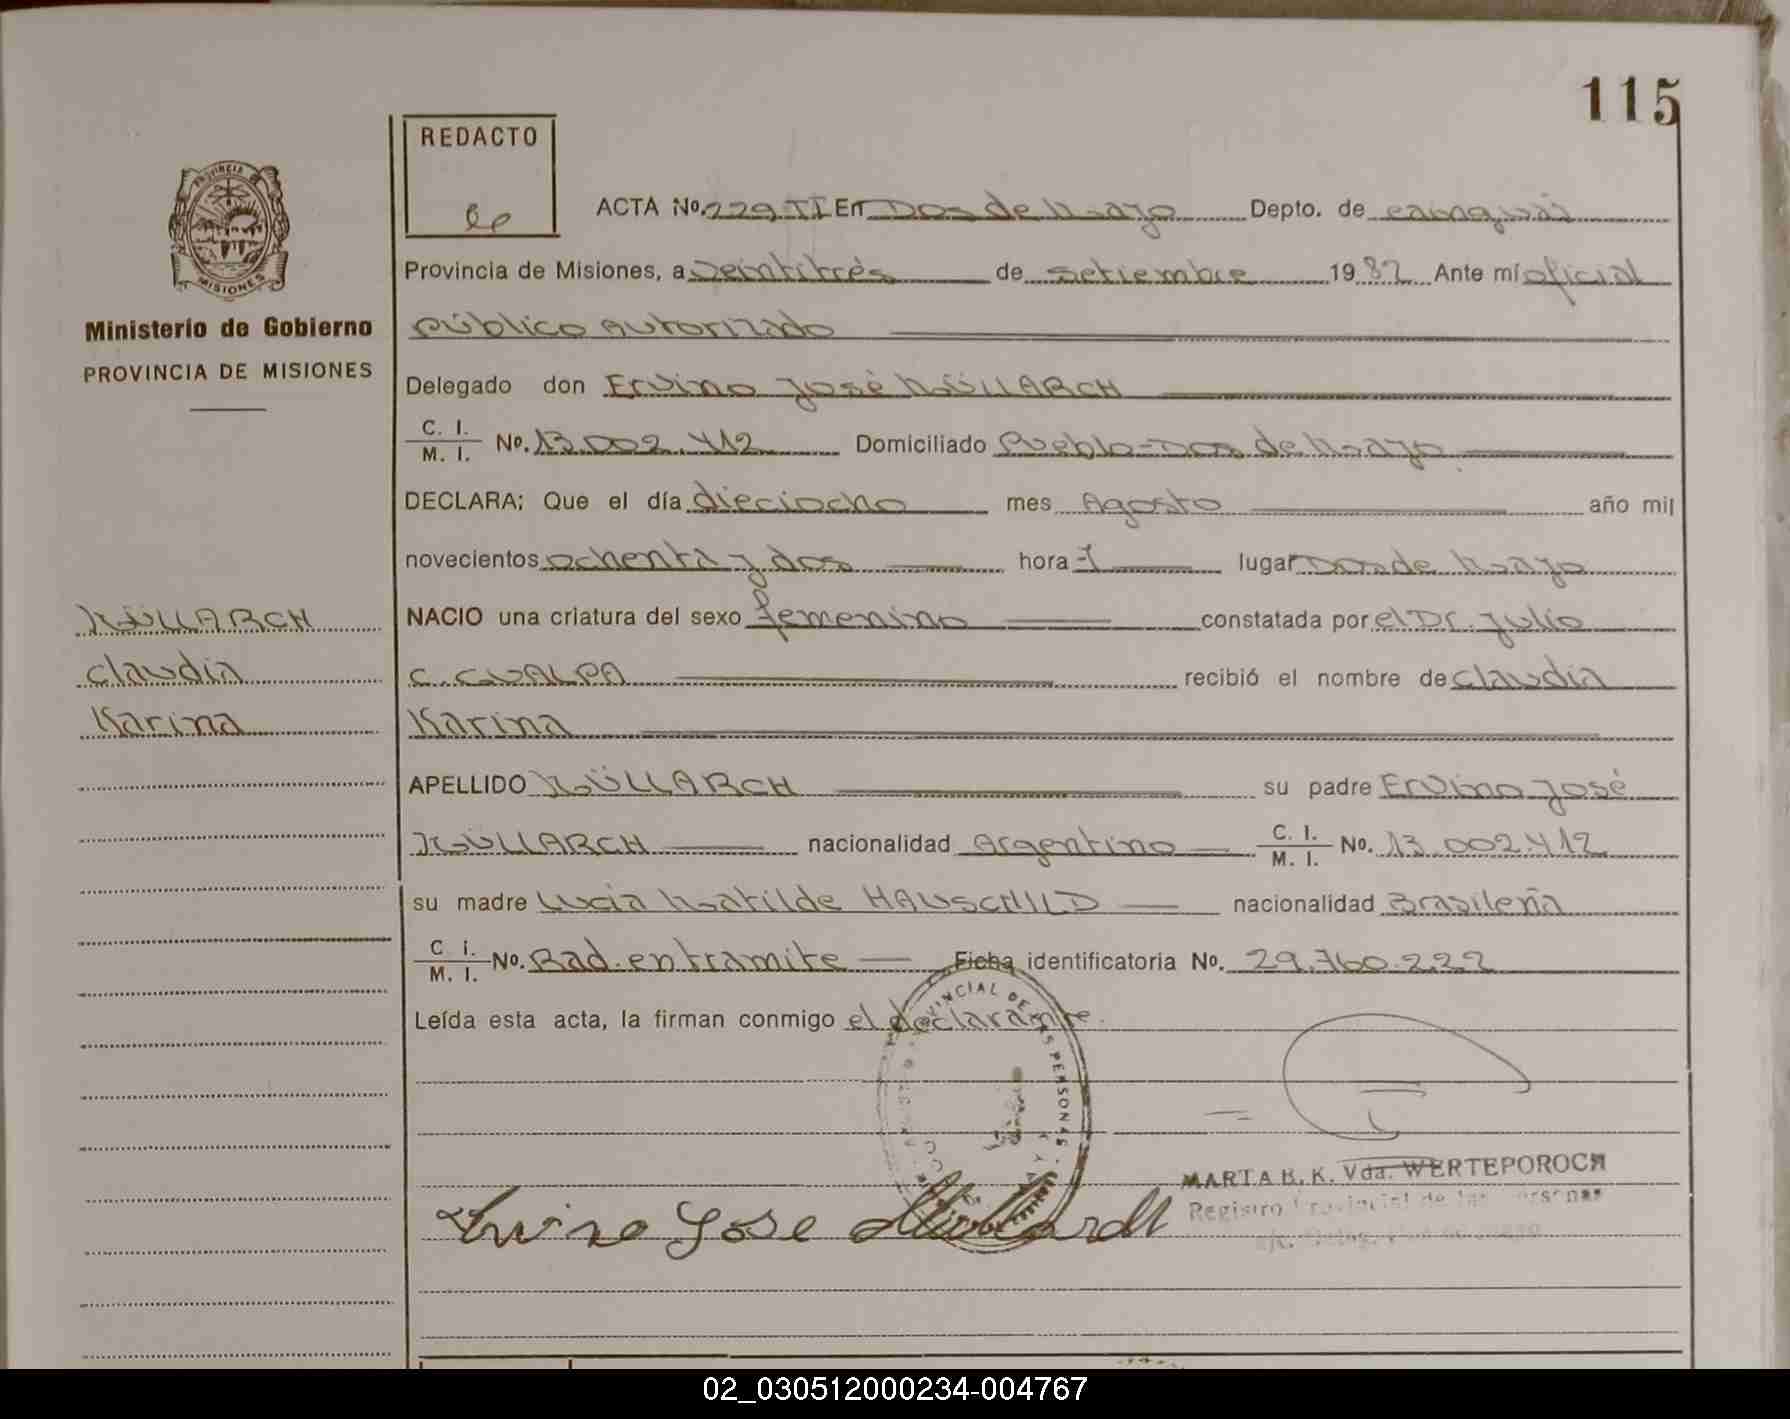 115
REDACTO
PROVINCIA
MISIONES
Ministerio de Gobierno
PROVINCIA DE MISIONES
ACTA No. 229 II En Dos de Mayo Depto. de cainguás
Provincia de Misiones, a veintitrés de setiembre 1982 Ante mí oficial
público autorizado
Delegado don Ervino José MÜLLARCH
C. I. / M. I. No. 13.002.412 Domiciliado Pueblo-Dos de Mayo
DECLARA; Que el día dieciocho mes Agosto año mil
novecientos ochenta y dos hora -1 lugar Dos de Mayo
NACIO una criatura del sexo femenino constatada por el Dr. Julio
C. GUALPA recibió el nombre de Claudia
Karina
MÜLLARCH
Claudia
Karina
APELLIDO MÜLLARCH su padre Ervino José
MÜLLARCH nacionalidad Argentino C. I. / M. I. No. 13.002.412
su madre Lucia Matilde HAUSCHILD nacionalidad Brasileña
C. I. / M. I. No. Rad. en tramite Ficha identificatoria No. 29.760.222
Leída esta acta, la firman conmigo el declarante.
PROVINCIAL DE LAS PERSONAS
MARTA B. K. Vda. WERTEPOROCH
Registro Provincial de las Personas
Ervino Jose
02_030512000234-004767